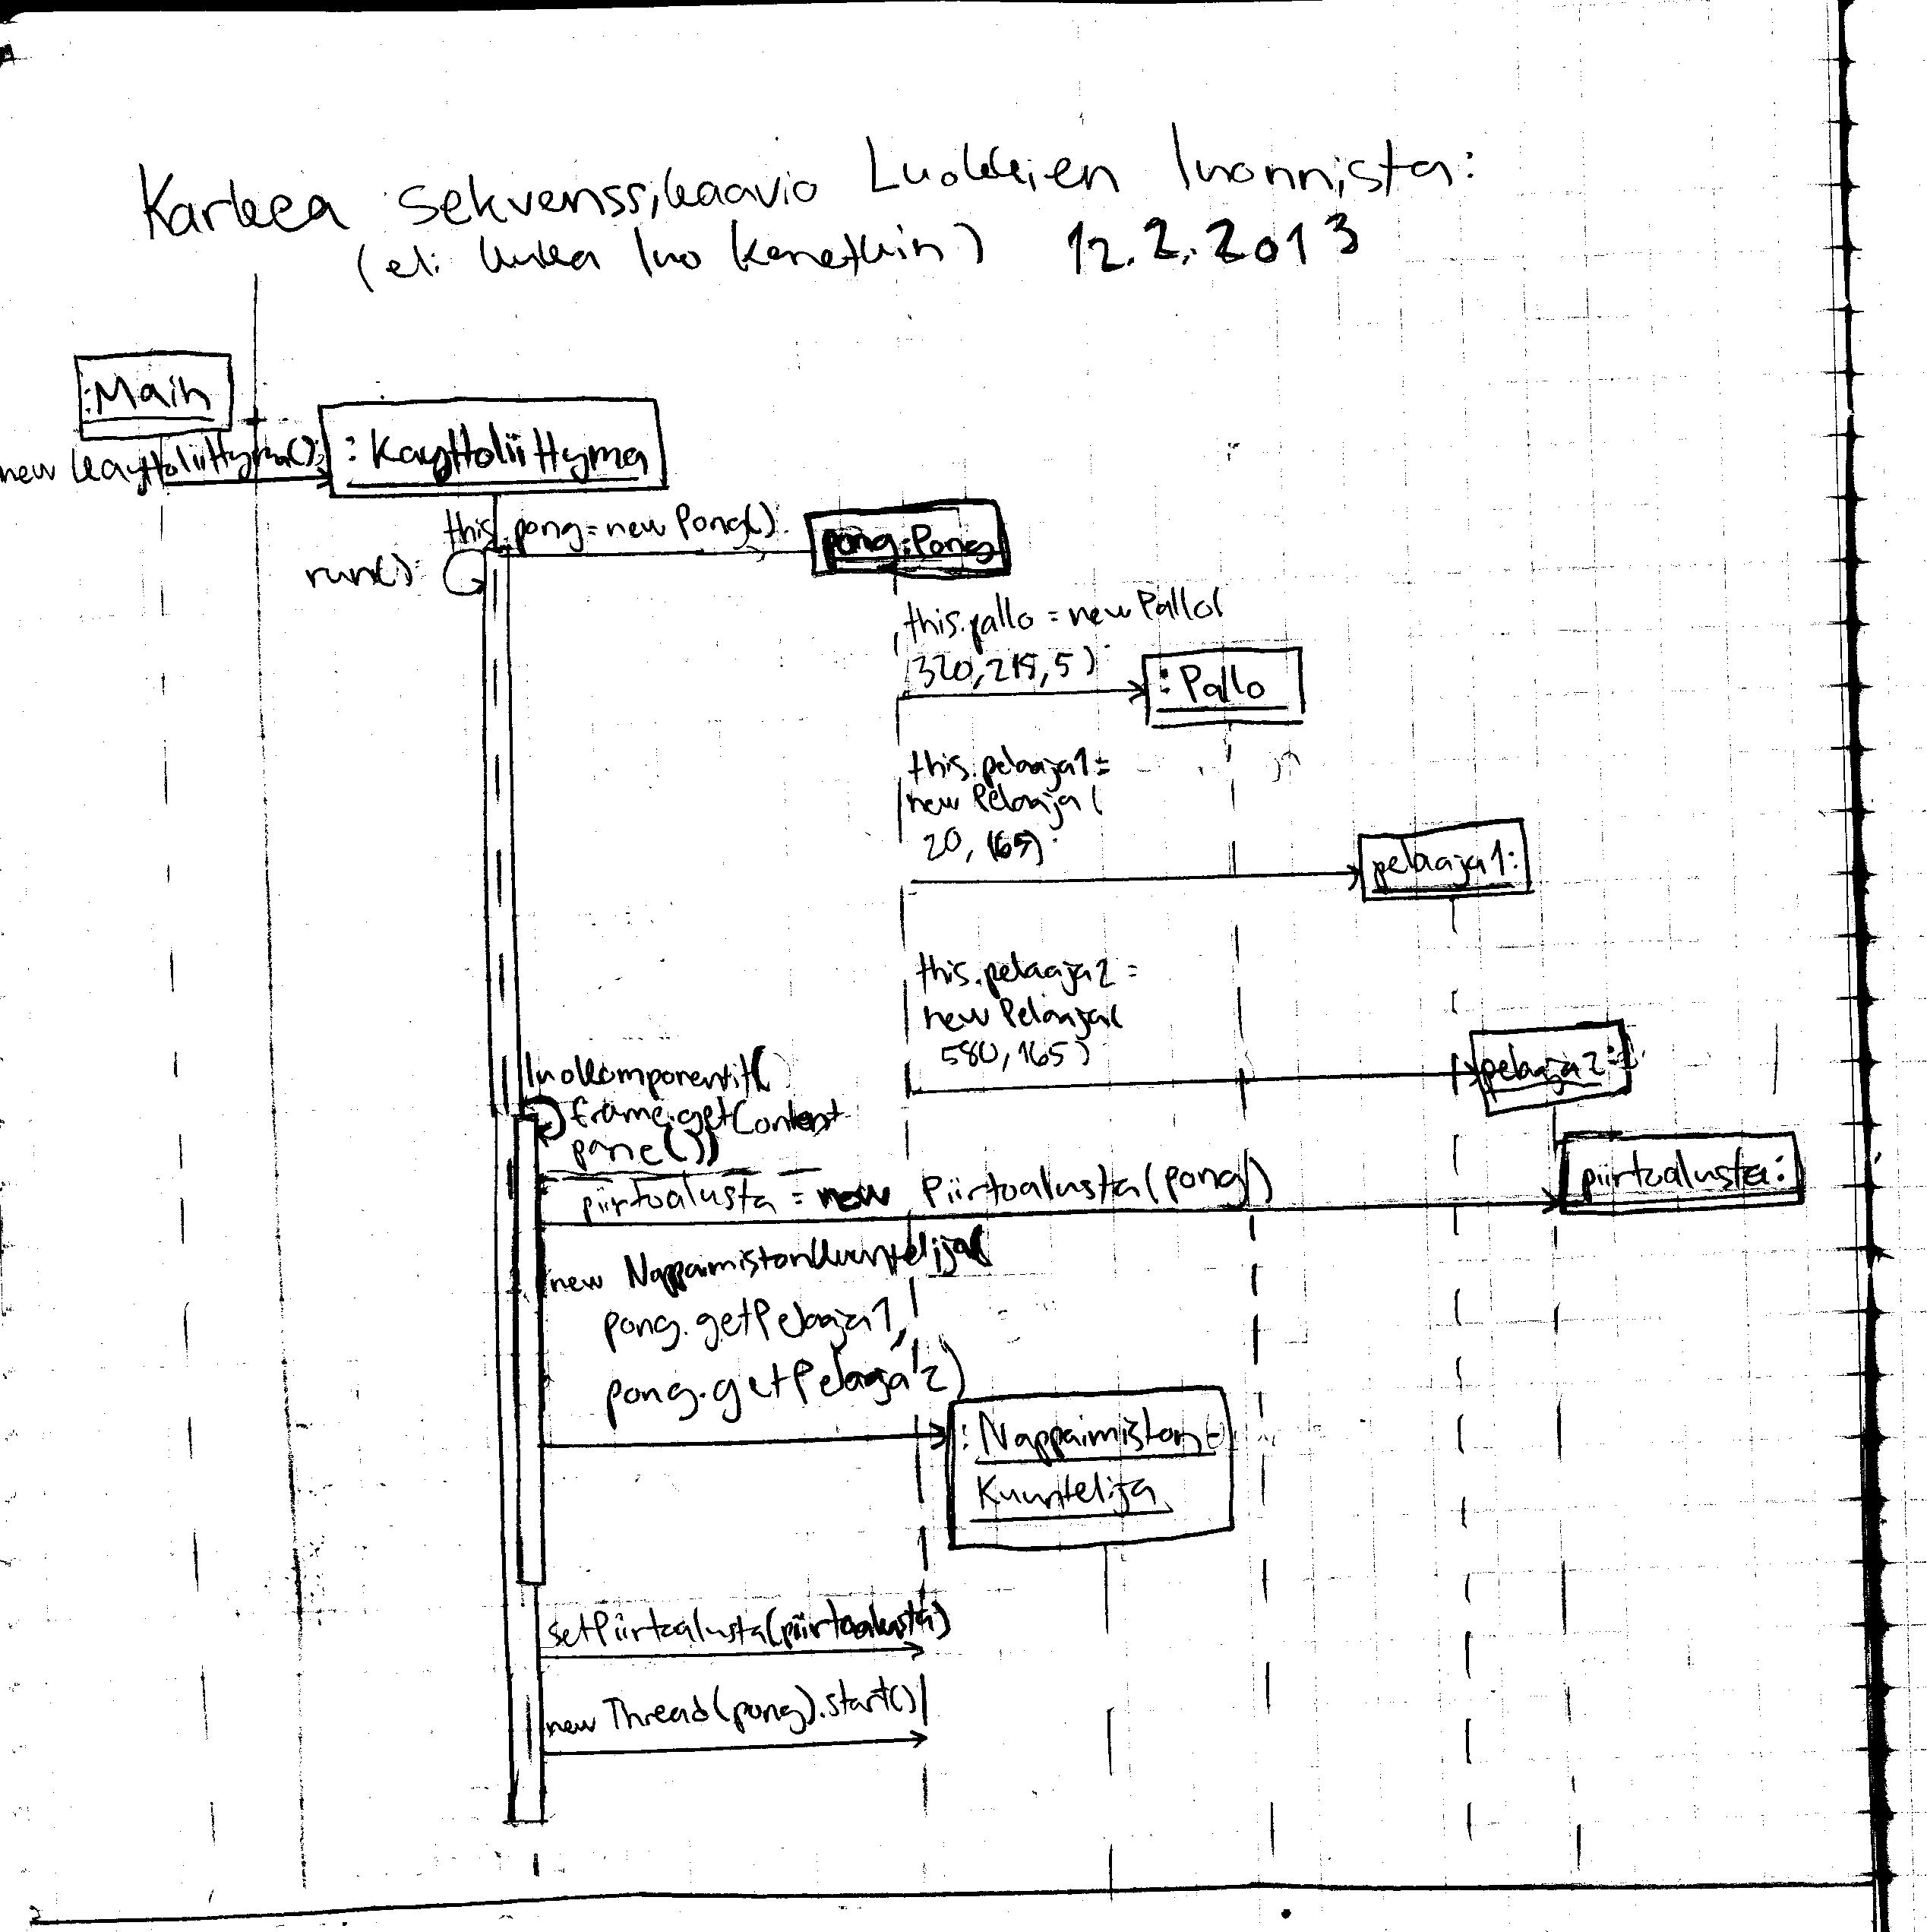 Karkea sekvenssikaavio Luokkien luonnista:
(eli kuka luo kenetkin) 12.2.2013
:Main
new Kayttoliittyma():
:Kayttoliittyma
this.pong=new Pong():
pong:Pong
run():
this.pallo = new Pallo(
320,215,5):
:Pallo
this.pelaaja1=
new Pelaaja(
20,165):
pelaaja1:
this.pelaaja2=
new Pelaaja(
580,165)
pelaaja2:
luoKomponentit(
frame.getContent
pane())
piirtoalusta = new Piirtoalusta(pong)
piirtoalusta:
new NappaimistonKuuntelija(
pong.getPelaaja1,
pong.getPelaaja2)
:Nappaimiston
Kuuntelija
setPiirtoalusta(piirtoalusta)
new Thread(pong).start()